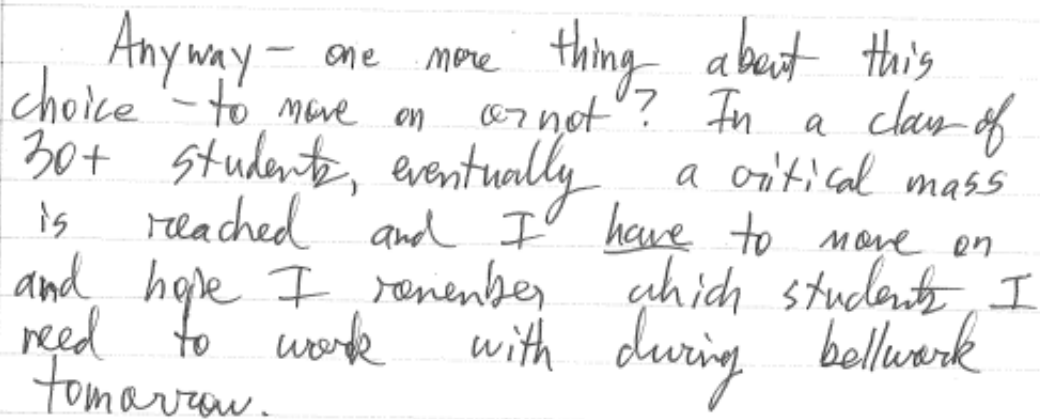 Anyway – one more thing about this
choice – to move on or not? In a class of
30+ students, eventually a critical mass
is reached and I have to move on
and hope I remember which students I
need to work with during bellwork
tomorrow.